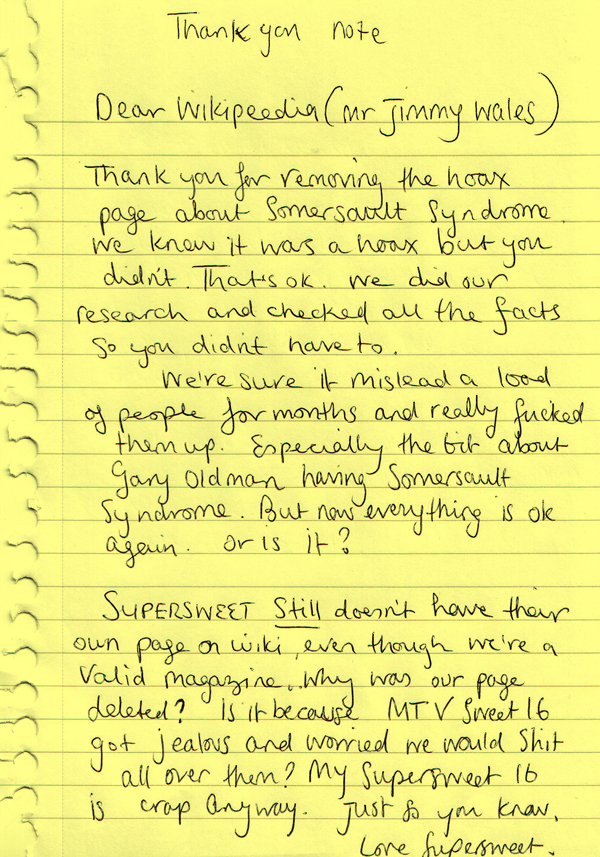 Thank you note
Dear Wikipeedia (Mr Jimmy Wales)
Thank you for removing the hoax
page about Somersault Syndrome.
We knew it was a hoax but you
didn't. That's ok. We did our
research and checked all the facts
so you didn't have to.
We're sure it mislead a load
of people for months and really fucked
them up. Especially the bit about
Gary Oldman having Somersault
Syndrome. But now everything is ok
again. Or is it?
SUPERSWEET Still doesn't have their
own page on wiki, even though we're a
valid magazine. Why was our page
deleted? Is it because MTV Sweet 16
got jealous and worried we would shit
all over them? My Supersweet 16
is crap anyway. Just so you know.
Love Supersweet.